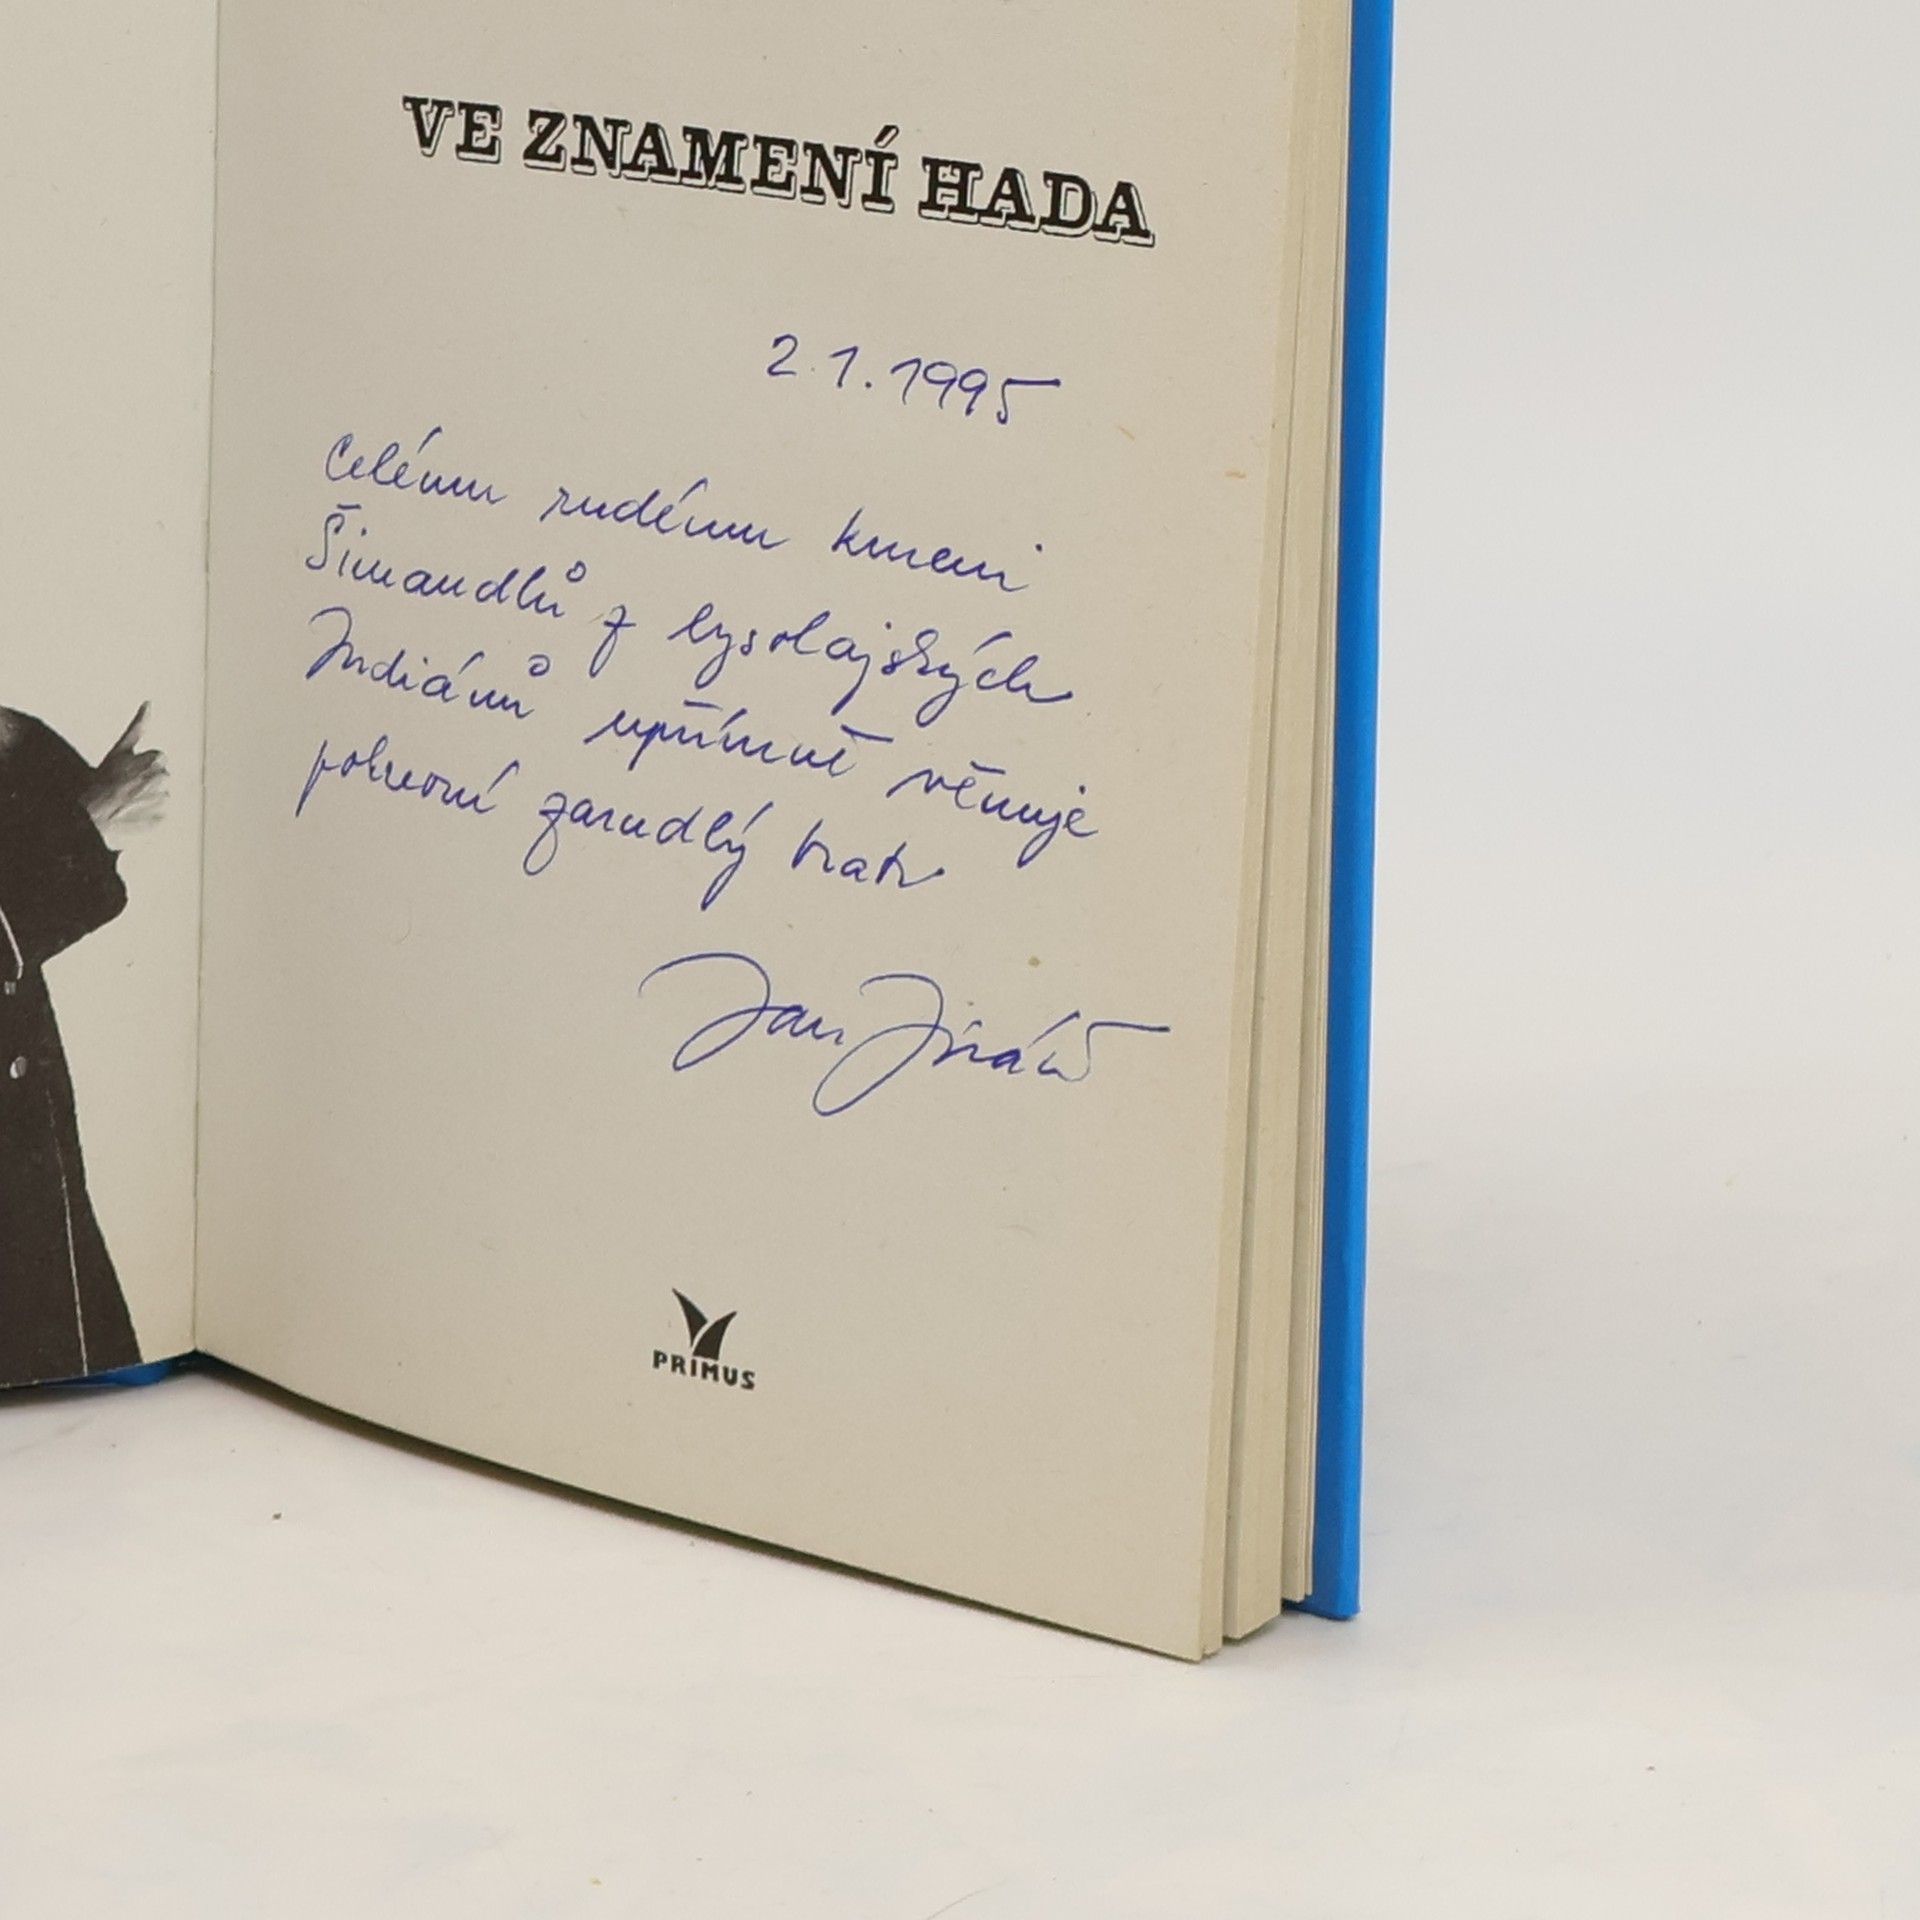 VE ZNAMENÍ HADA
2.1.1995
Celému rudému kmeni
Šimandlů z lysolajských
Indiánů upřímně věnuje
pokrevní zarudlý bratr
Jan Jiráň
PRIMUS